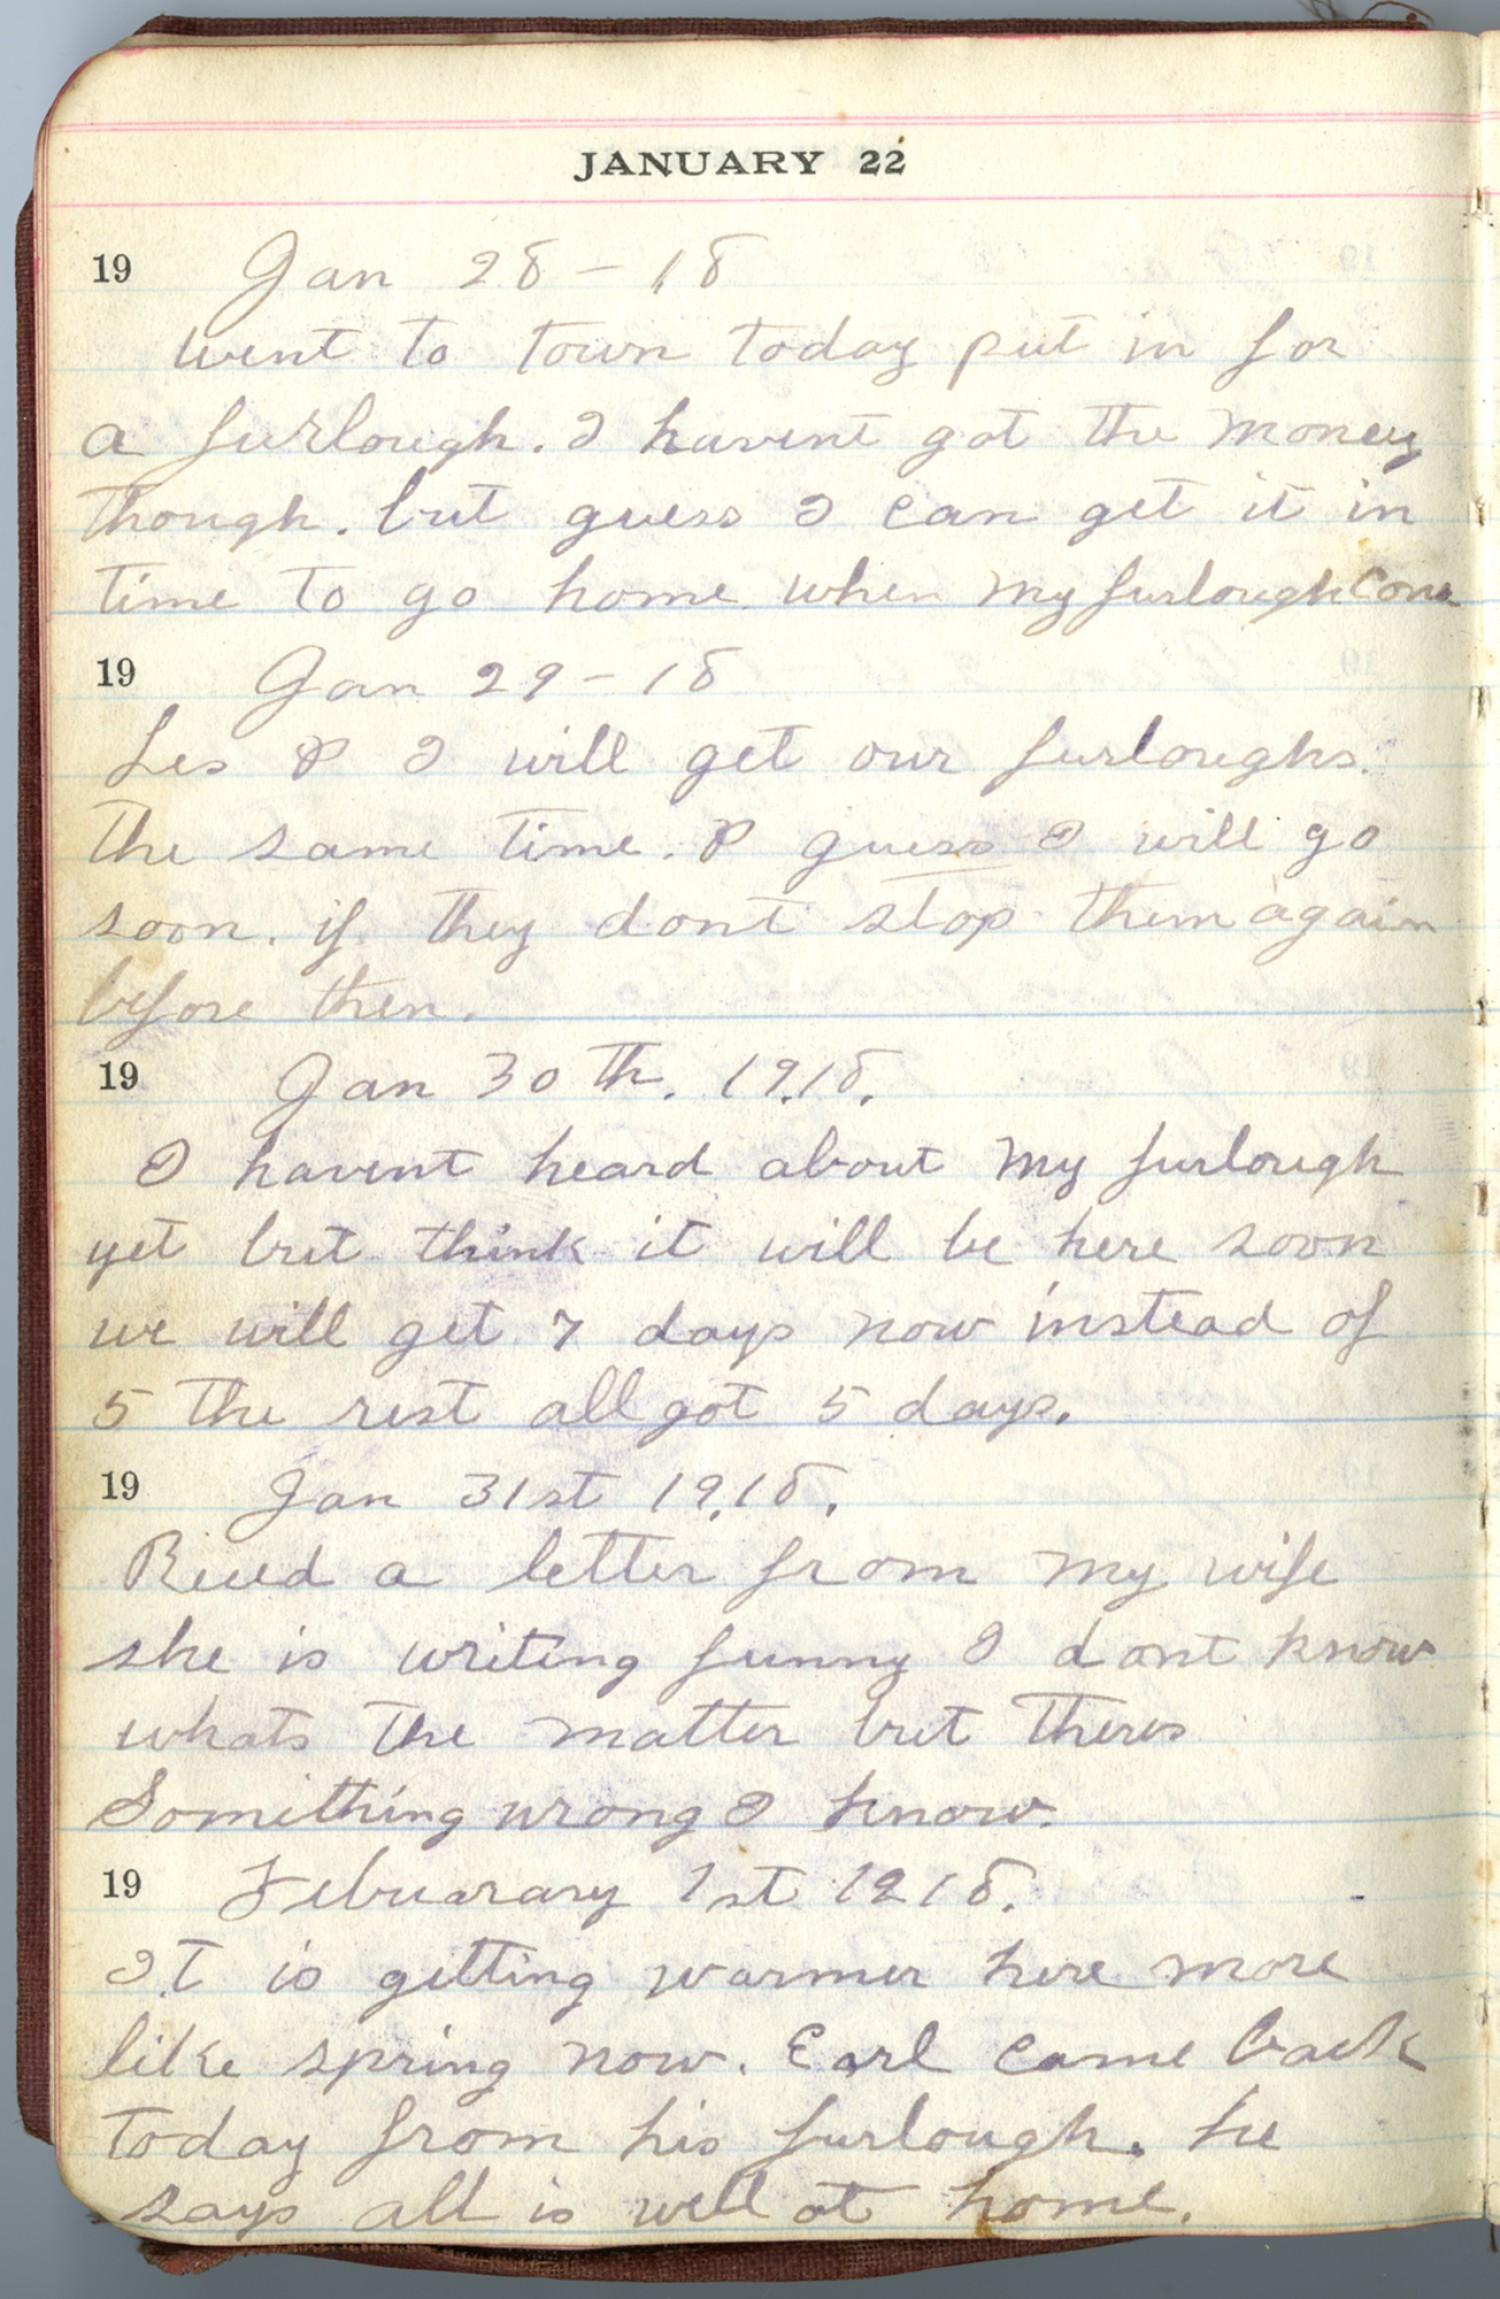 JANUARY 22
19 Jan 28 - 18
went to town today put in for
a furlough. I havent got the money
though. but guess I can get it in
time to go home when my furlough come
19 Jan 29 - 18
Les & I will get our furloughs.
the same time. & guess I will go
soon. if they dont stop them again
before then.
19 Jan 30th. 19.18.
I havent heard about my furlough
yet but think it will be here soon
we will get 7 days now instead of
5 the rest all got 5 days.
19 Jan 31st 19.18.
Recued a letter from my wife
she is writing funny I dont know
whats the matter but theres
Something wrong I know.
19 Februarary 1st 1918.
It is getting warmer here more
like spring now. Earl came back
today from his furlough. he
says all is well at home.